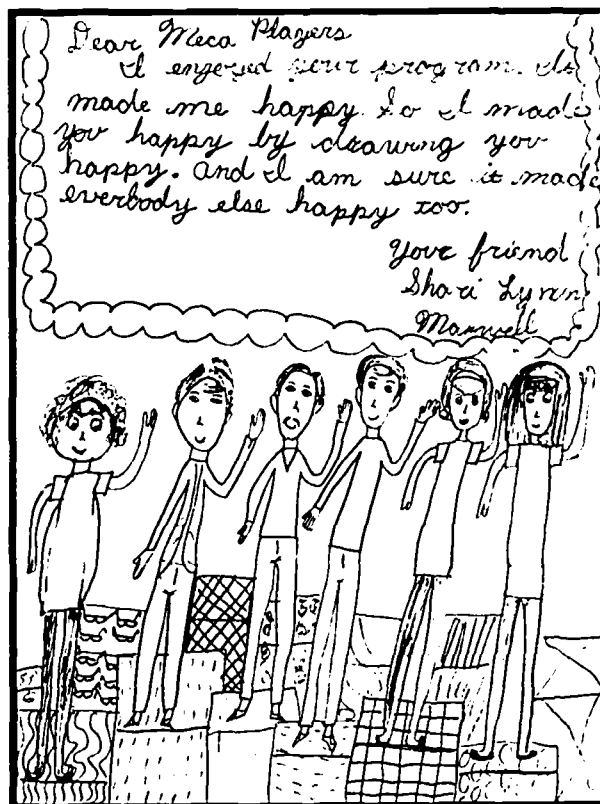 Dear Meca Players
I enjoyed your program. It
made me happy. So I made
you happy by drawing you
happy. and I am sure it made
everbody else happy too.
Your friend
Shari Lynn
Maxwell